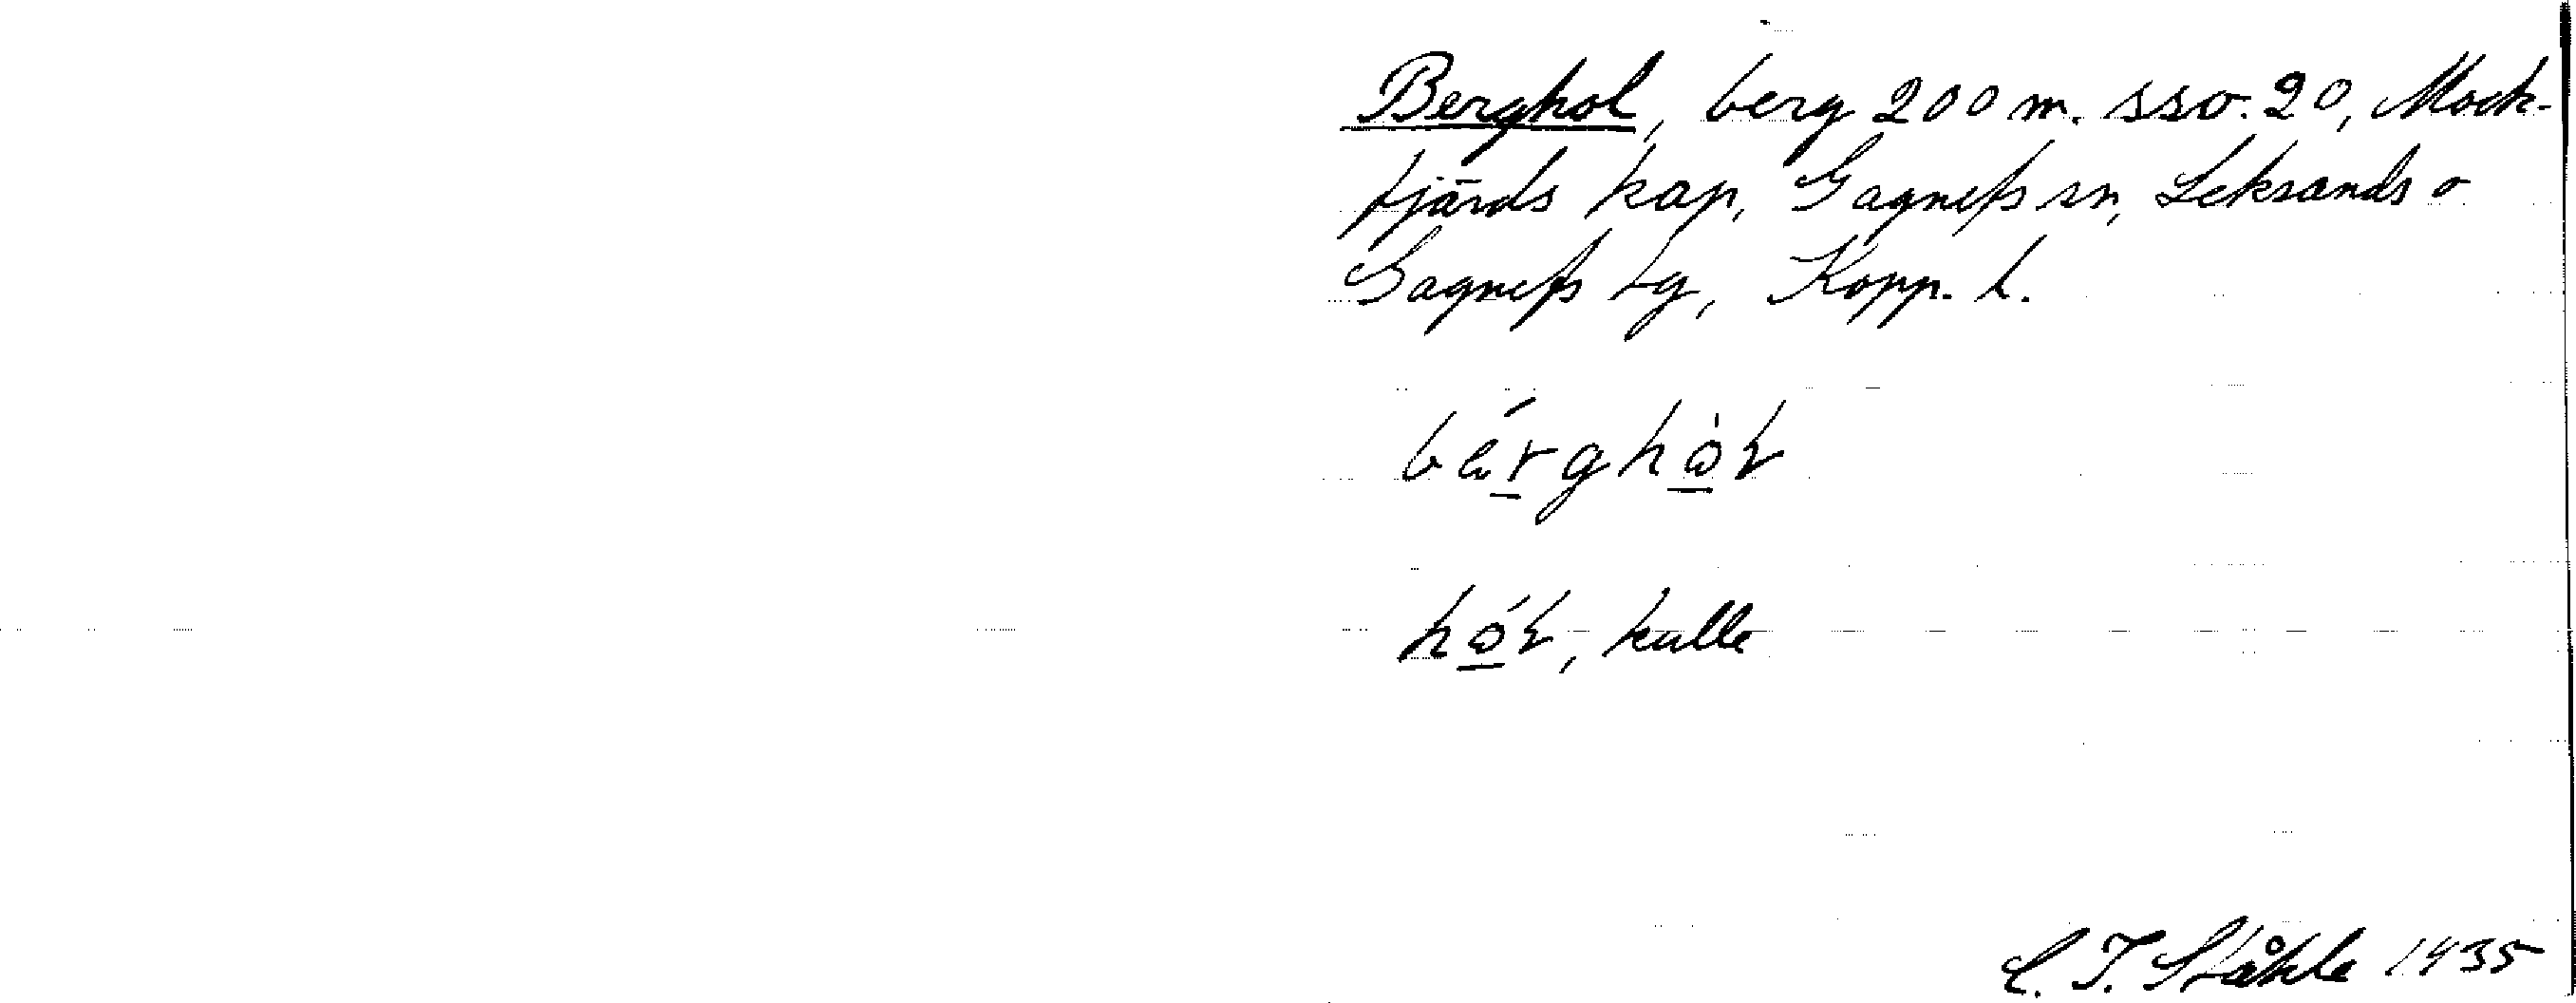 Berghol, berg 200 m. sso. 20, Mock-
fjärds kap, Gagnefs sn, Leksands o
Gagnefs tg, Kopp. l.
bérghòł
hół, kulle
C. I. Ståhle 1935